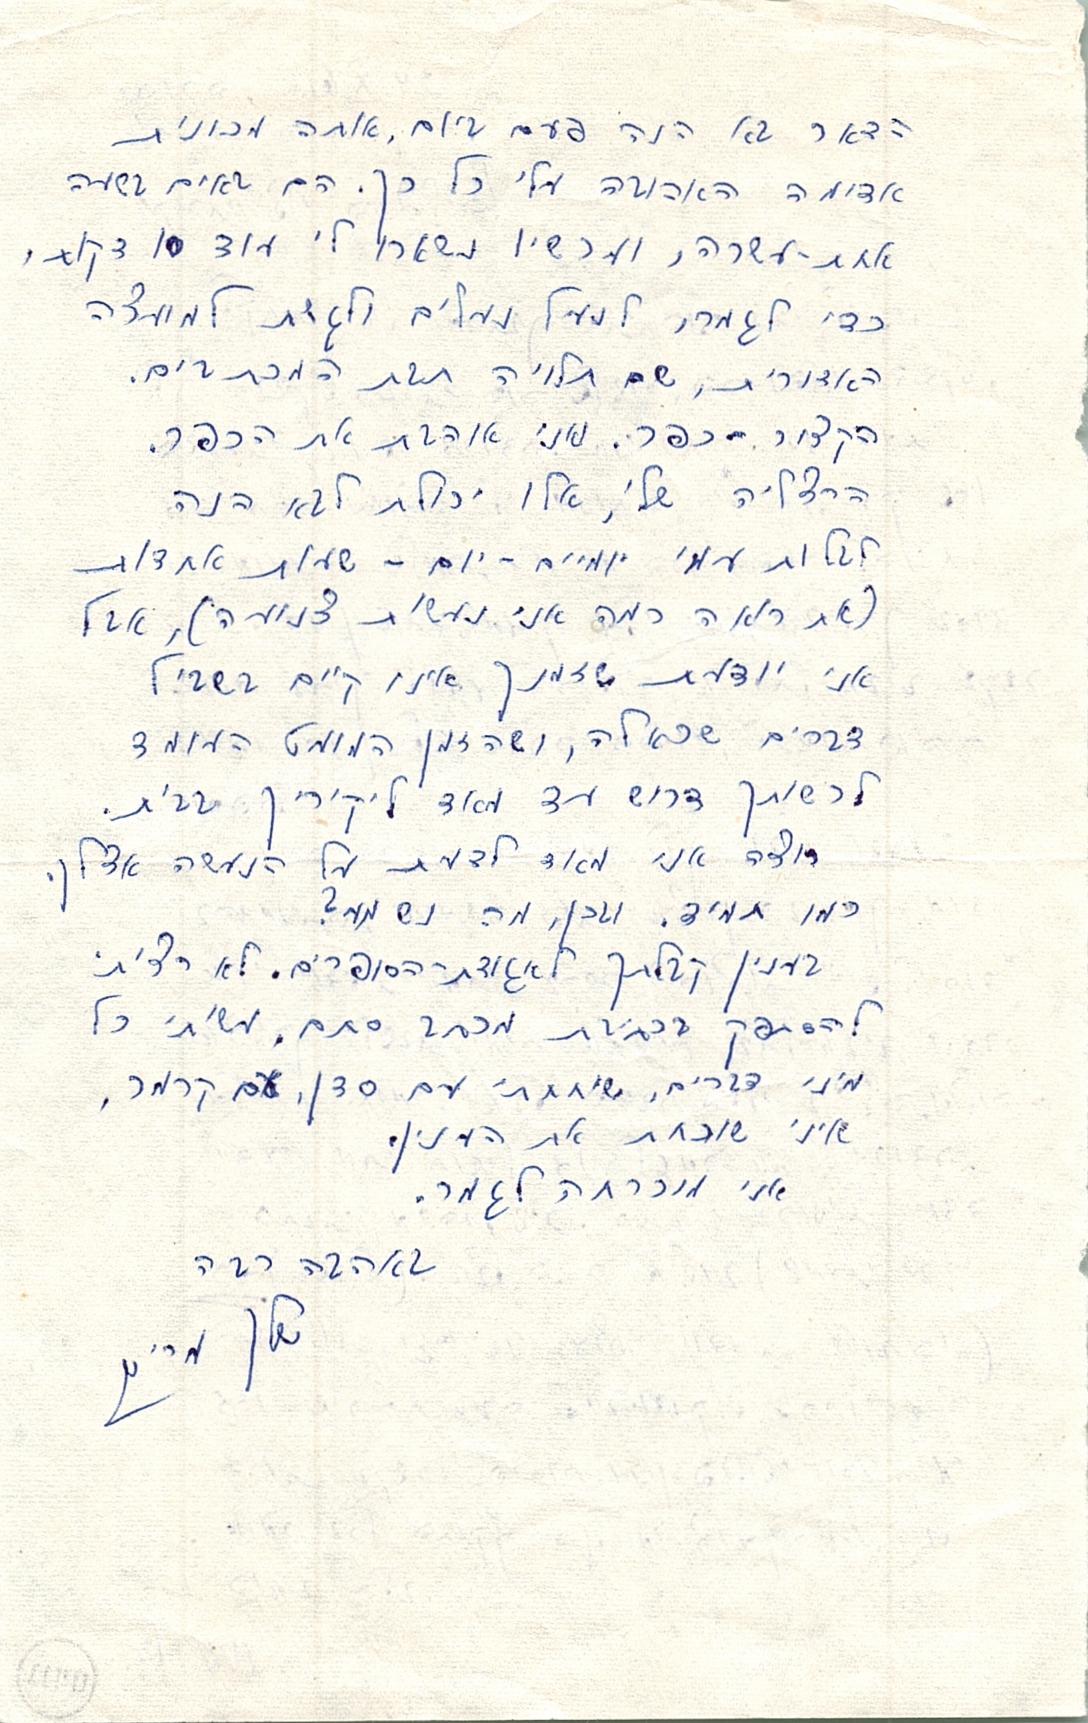 הדאר בא הנה פעם ביום, אותה מכונית
אדומה האהובה עלי כל כך. הם באים בשעה
אחת-עשרה, ועכשיו נשארו לי עוד 10 דקות,
כדי לגמרי לנעול נעלים ולגשת למועצה
האזורית, שם תלויה תבת המכתבים.
הקצור - כפר. ואני אוהבת את הכפר.
הרצליה שלי, אלו יכולת לבא הנה
לבלות עמי יומיים - יום - שעות אחדות
(את רואה כמה אני נעשית צנועה), אבל
אני יודעת שזמנך אינו קיים בשביל
דברים שכאלה, ושהזמן המועט העומד
לרשותך דרוש עד מאוד ליקיריך בבית.
רוצה אני מאוד לדעת על הנעשה אצלך,
כמו תמיד. ובכן, מה נשמע?
בענין קבלתך לאגודת-הסופרים. לא רציתי
להסתפק בכתיבת מכתב סתם, עשיתי כל
מיני דברים, שוחחתי עם סדן, עם קרמר,
איני שוכחת את הענין.
אני מוכרחה לגמר.
באהבה רבה
שלך מרים